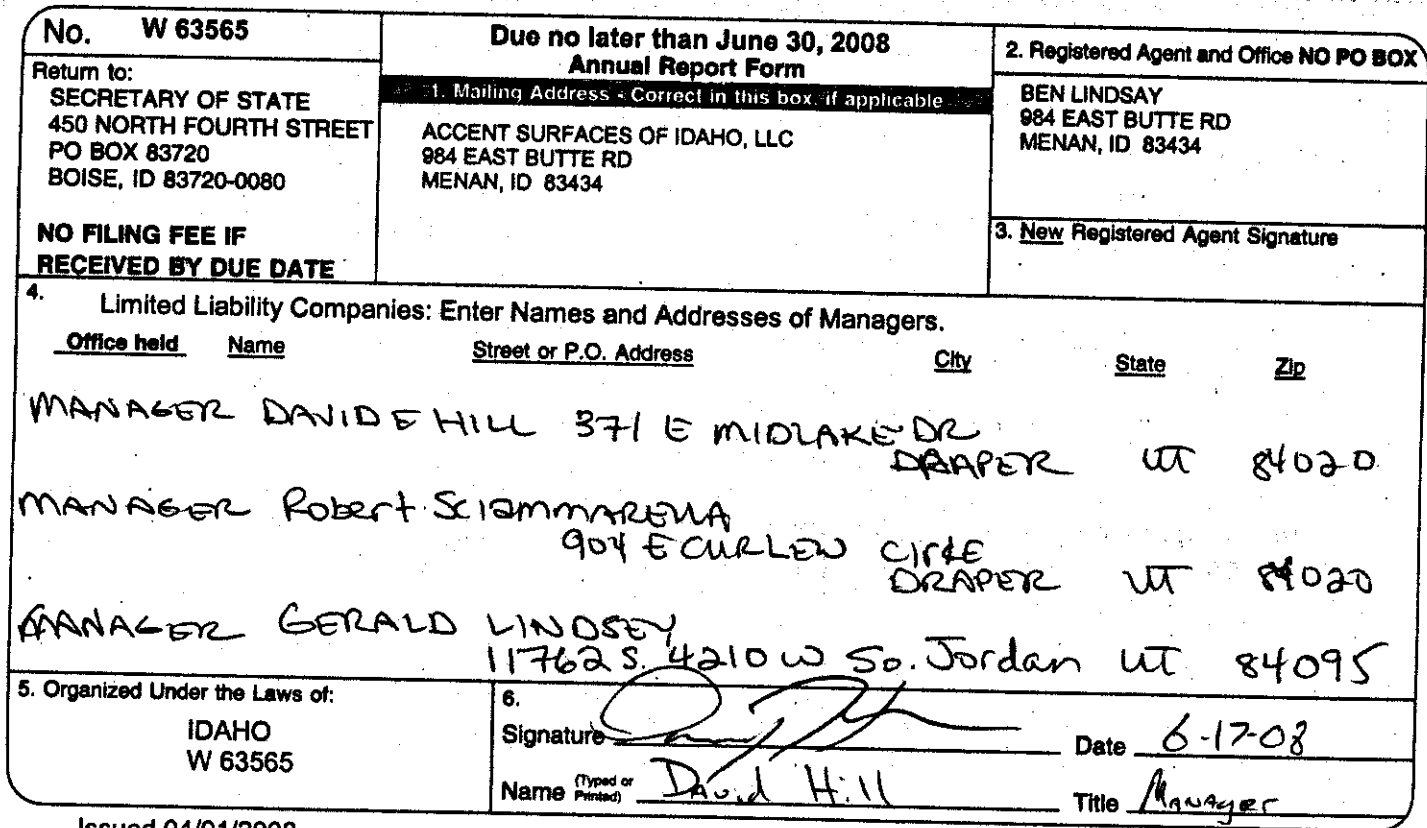 No. W 63565
Return to:
SECRETARY OF STATE
450 NORTH FOURTH STREET
PO BOX 83720
BOISE, ID 83720-0080
NO FILING FEE IF
RECEIVED BY DUE DATE
Due no later than June 30, 2008
Annual Report Form
1. Mailing Address - Correct in this box, if applicable
ACCENT SURFACES OF IDAHO, LLC
984 EAST BUTTE RD
MENAN, ID 83434
2. Registered Agent and Office NO PO BOX
BEN LINDSAY
984 EAST BUTTE RD
MENAN, ID 83434
3. New Registered Agent Signature
4. Limited Liability Companies: Enter Names and Addresses of Managers.
Office held Name Street or P.O. Address City State Zip
MANAGER DAVID E HILL 371 E MIDLAKE DR
DRAPER UT 84020
MANAGER Robert SCIAMMARELLA
904 E CURLEW CIRCLE
DRAPER UT 84020
MANAGER GERALD LINDSEY
11762 S. 4210 W So. Jordan UT 84095
5. Organized Under the Laws of:
IDAHO
W 63565
6.
Signature Date 6-17-08
Name (Typed or Printed) David Hill Title Manager
Issued 04/01/2008